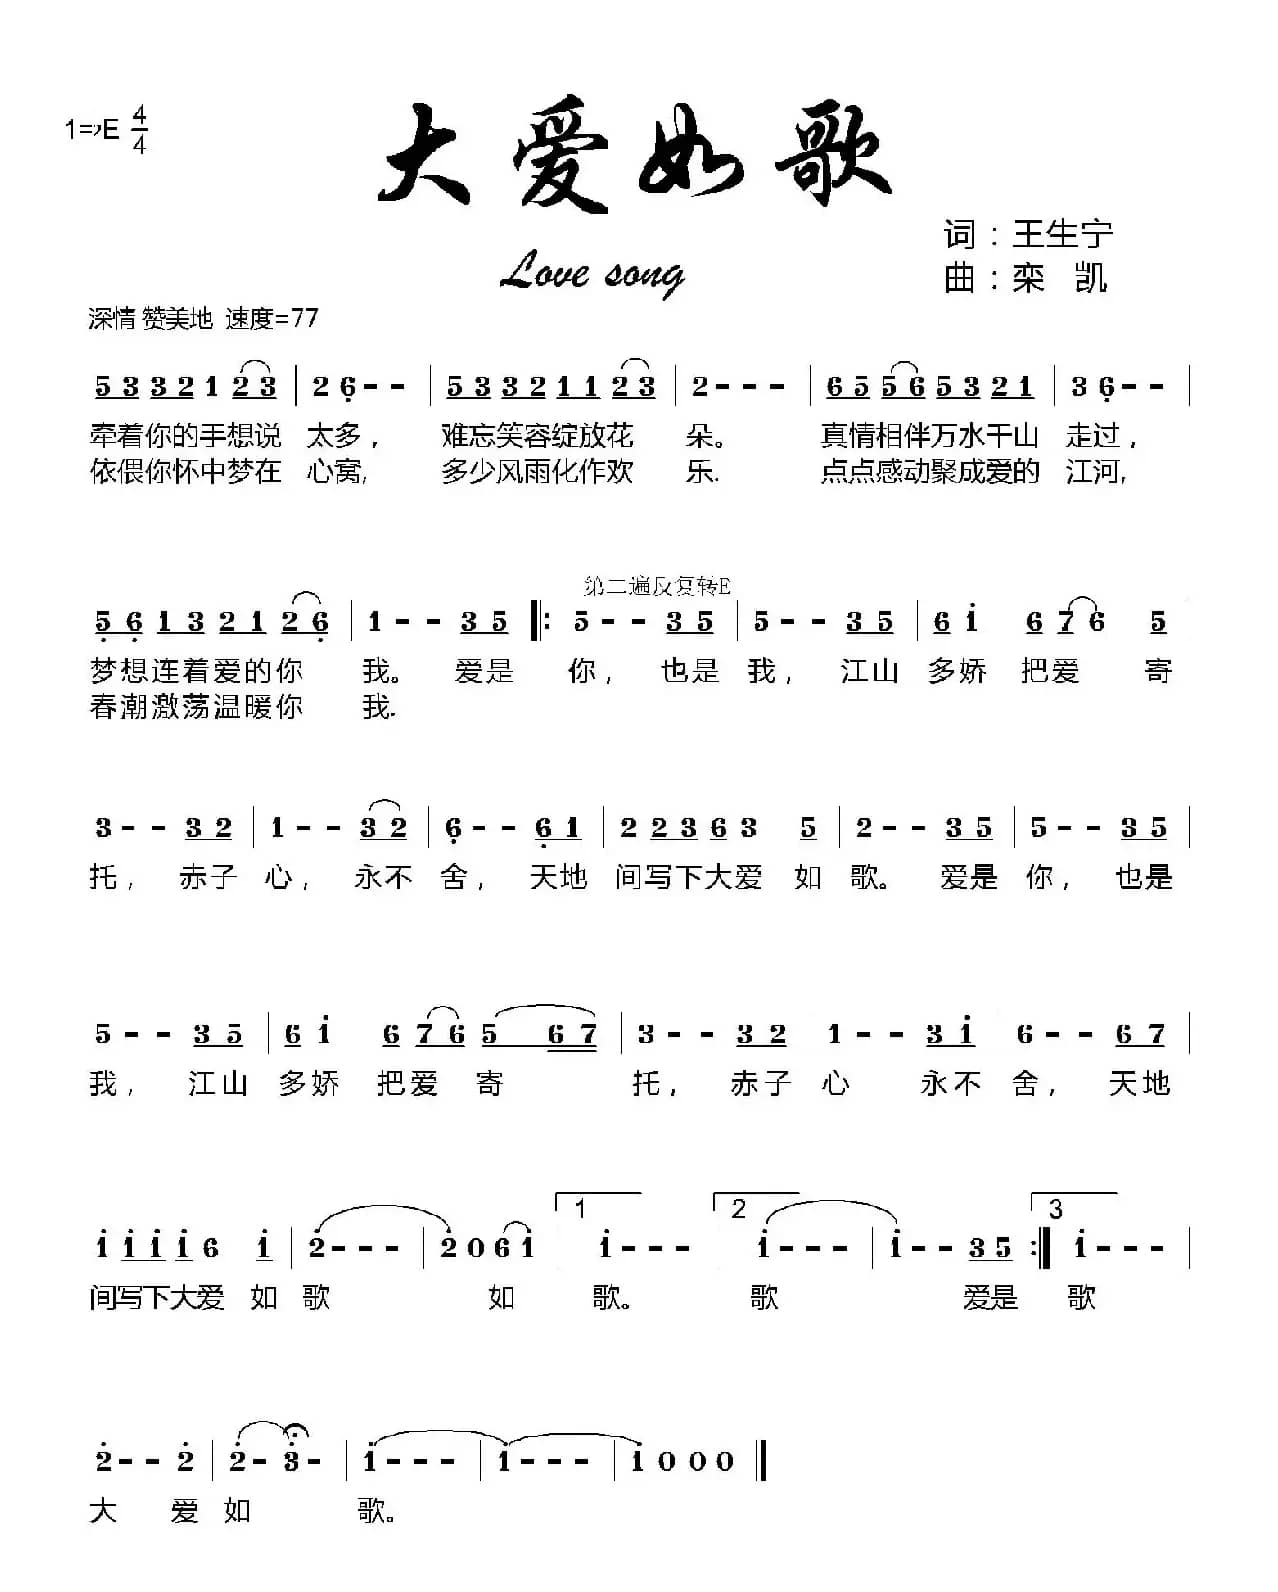 1=♭E 4/4
大爱如歌
词：王生宁
Love song
曲：栾 凯
深情 赞美地 速度=77
5 3 3 2 1 2 3 | 2 6 - - | 5 3 3 2 1 1 2 3 | 2 - - - | 6 5 5 6 5 3 2 1 | 3 6 - - |
牵着你的手想说 太多， 难忘笑容绽放花 朵。 真情相伴万水千山 走过，
依偎你怀中梦在 心窝, 多少风雨化作欢 乐. 点点感动聚成爱的 江河,
第二遍反复转E
5 6 1 3 2 1 2 6 | 1 - - 3 5 ‖: 5 - - 3 5 | 5 - - 3 5 | 6 i 6 7 6 5
梦想连着爱的你 我。 爱是 你， 也是我， 江山多娇 把爱 寄
春潮激荡温暖你 我.
3 - - 3 2 | 1 - - 3 2 | 6 - - 6 1 | 2 2 3 6 3 5 | 2 - - 3 5 | 5 - - 3 5 |
托， 赤子 心， 永不 舍， 天地 间写下大爱 如 歌。 爱是 你， 也是
5 - - 3 5 | 6 i 6 7 6 5 6 7 | 3 - - 3 2 1 - - 3 i 6 - - 6 7 |
我， 江山 多娇 把爱 寄 托， 赤子 心 永不 舍， 天地
1 2 3
i i i i 6 i | 2 - - - | 2 0 6 i i - - - i - - - | i - - 3 5 :‖ i - - - |
间写下大爱 如 歌 如 歌。 歌 爱是 歌
2 - - 2 | 2 - 3 - | i - - - | i - - - | i 0 0 0 ‖
大 爱 如 歌。